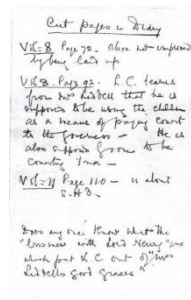 Cut pages in Diary
Vol: 8 Page 72. Alice not improved
by being laid up
Vol 8. Page 92. L.C. learns
from Mrs Liddell that he is
supposed to be using the children
as a means of paying court
to the governess — He is
also supposed to be
courting Ina —
Vol: 11 Page 110 — is about
Does any one know what the
"business with Lord Newry" was
which put L C out of "Mrs
Liddell's good graces"